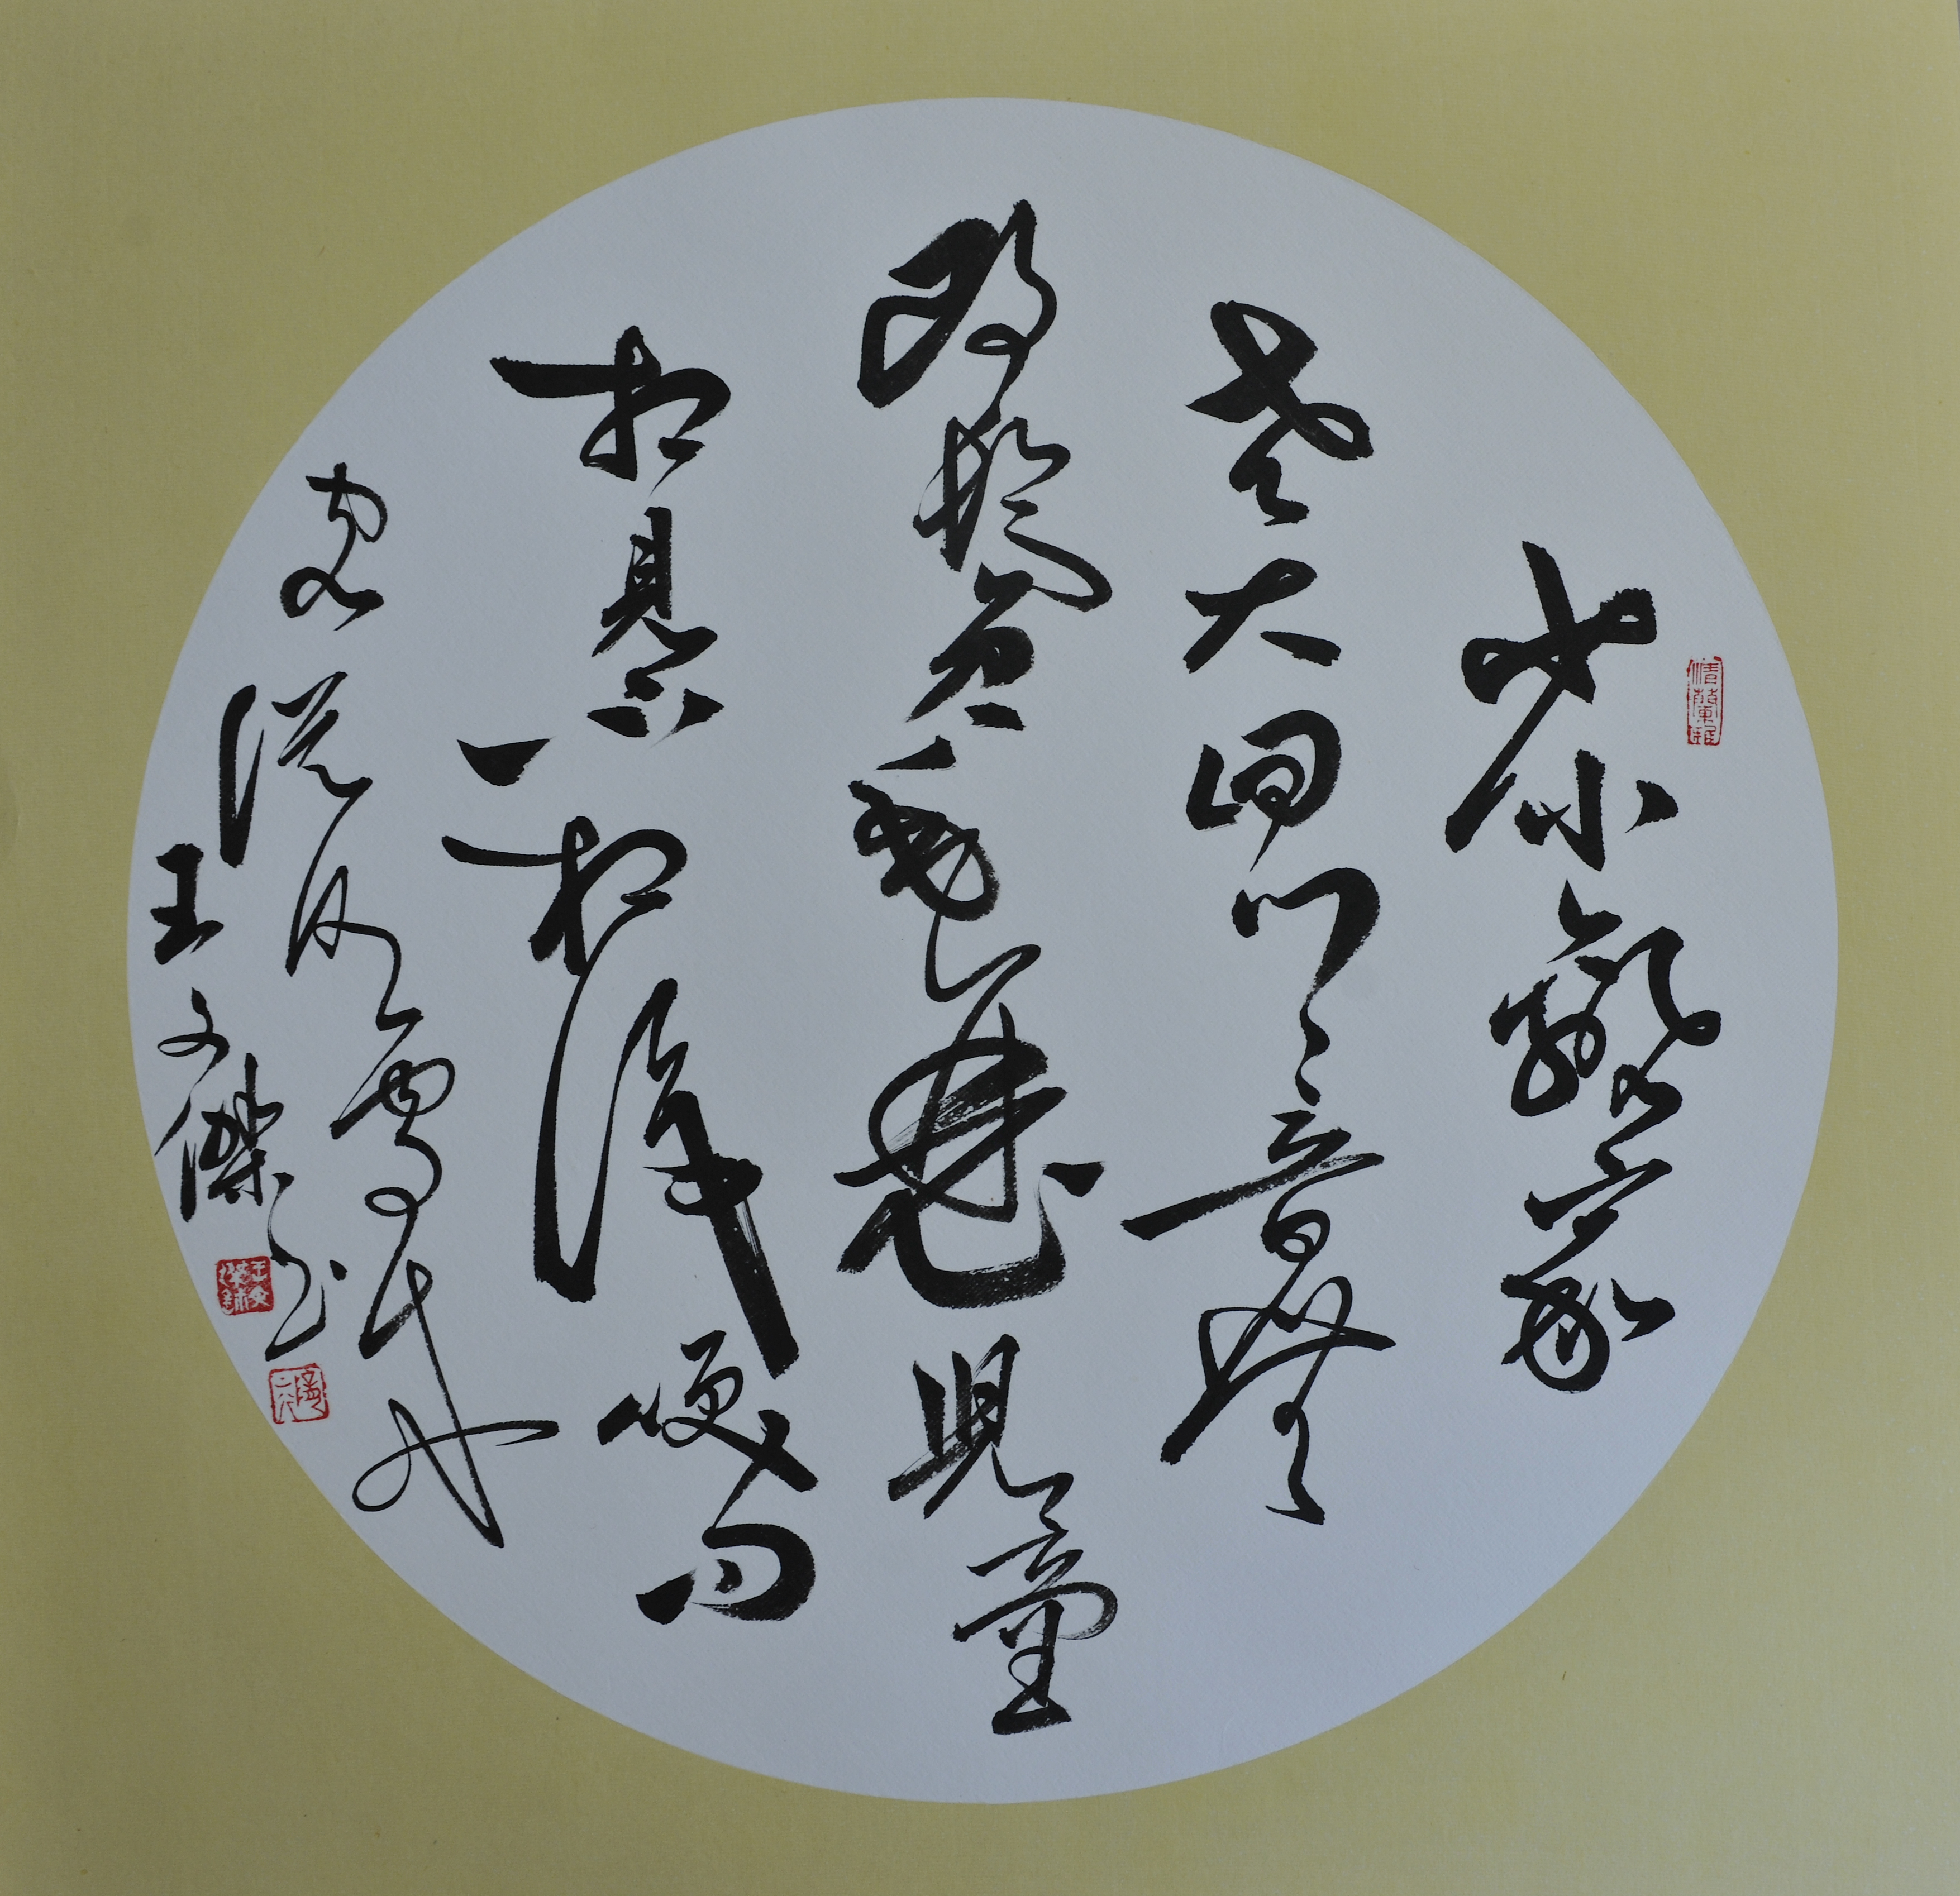 少小離家
老大回鄉音無
改鬢毛衰兒童
相見不相識笑问
客從何處來
王文傑书